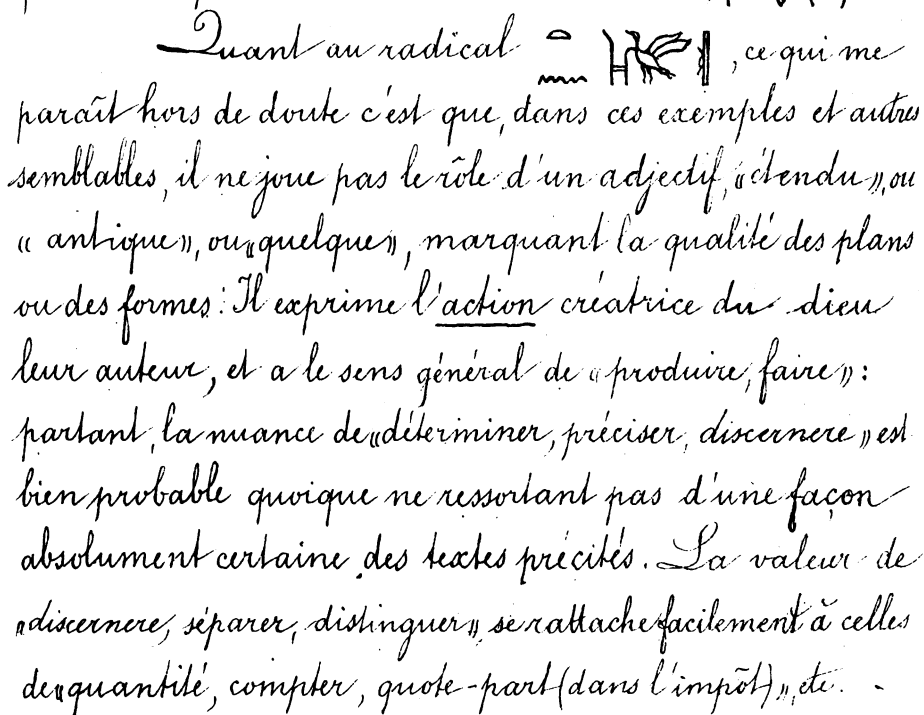 Quant au radical , ce qui me
paraît hors de doute c'est que, dans ces exemples et autres
semblables, il ne joue pas le rôle d'un adjectif, « étendu », ou
« antique », ou « quelque », marquant la qualité des plans
ou des formes : Il exprime l'action créatrice du dieu
leur auteur, et a le sens général de « produire, faire » :
partant, la nuance de « déterminer, préciser, discernere » est
bien probable quoique ne ressortant pas d'une façon
absolument certaine des textes précités. La valeur de
« discernere, séparer, distinguer » se rattache facilement à celles
de « quantité, compter, quote-part (dans l'impôt) », etc. -